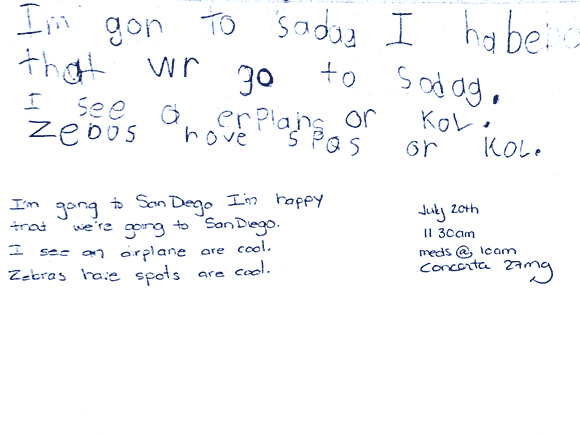 Im gon to sadag I habe
that wr go to sodag.
I see a erplans or KoL.
Zebus hove spas or KoL.
I'm going to San Diego I'm happy
that we're going to San Diego.
I see an airplane are cool.
Zebras have spots are cool.
July 20th
11 30am
meds @ 10am
Concerta 27mg